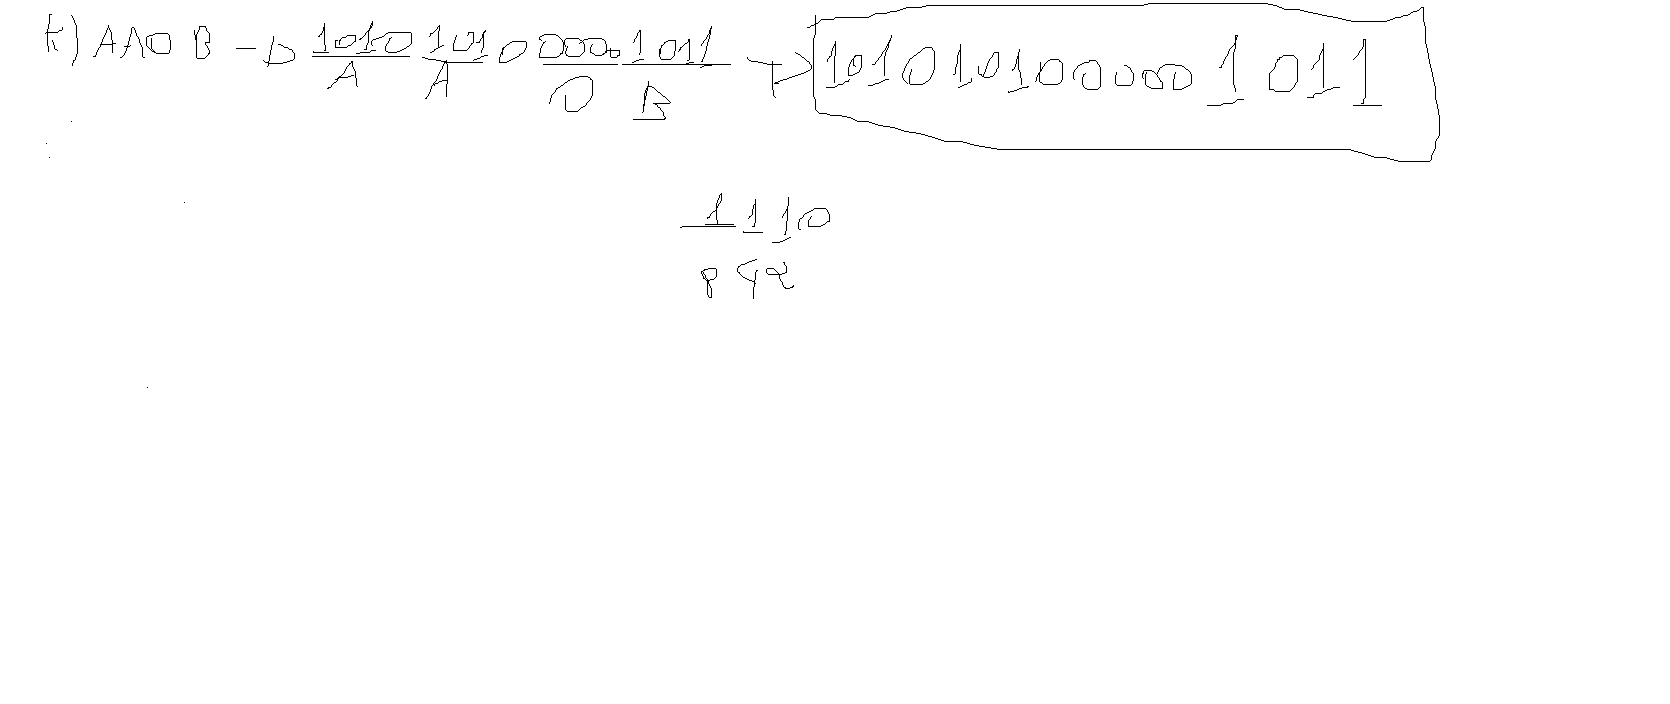 k) AA0B → 1010 1010 0000 1011 → 1010101000001011
A A 0 B
1110
842